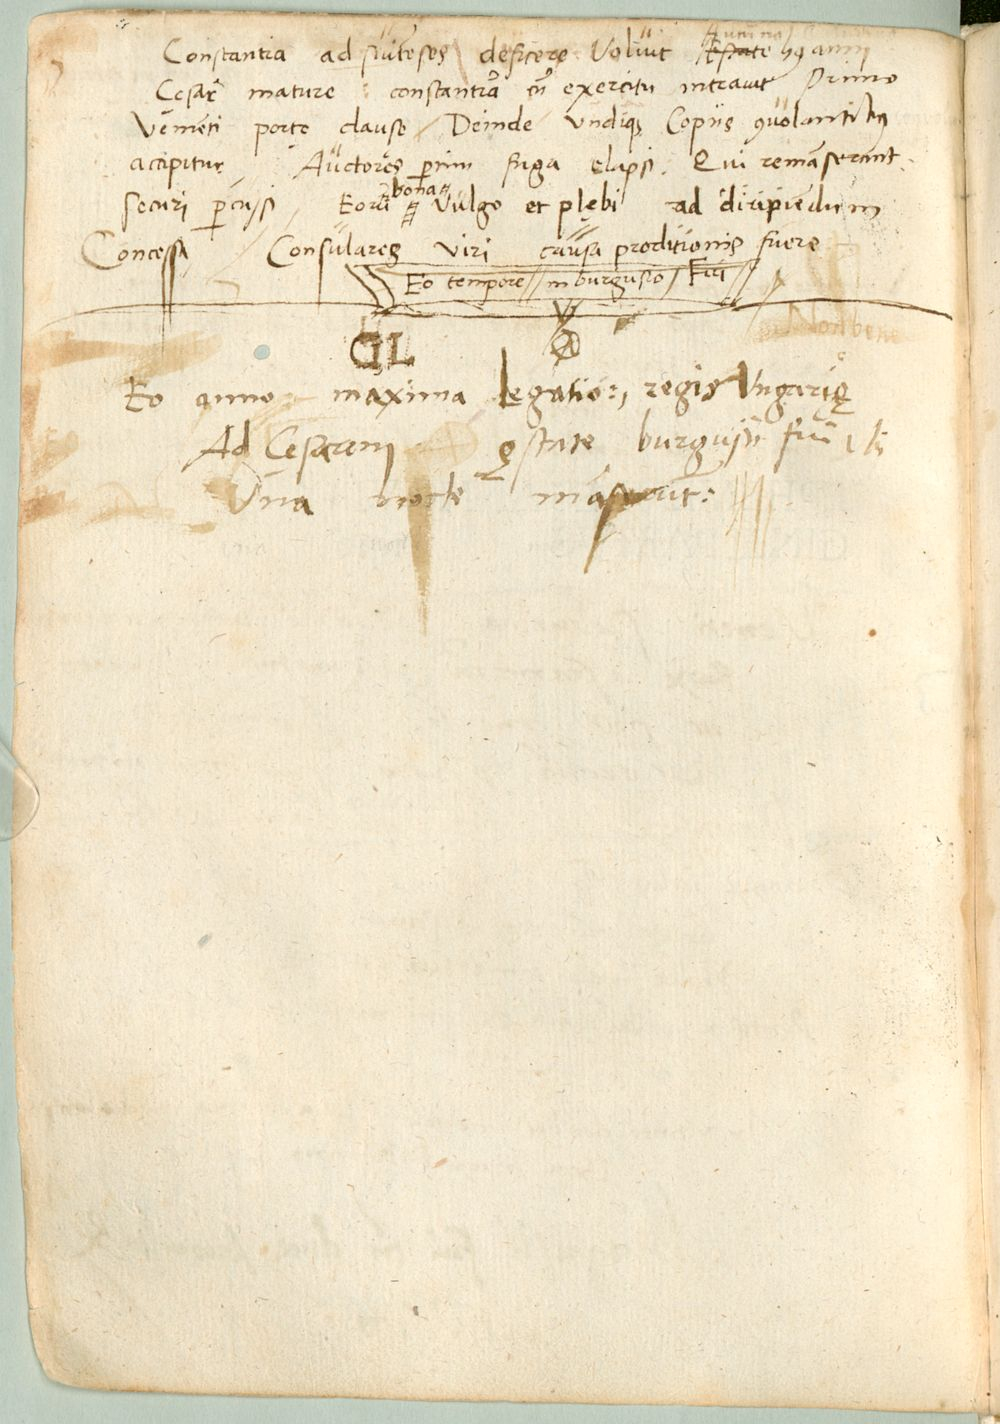 Constantia ad suiteses deficere Voluit Estate hꝯ anni
Cesar mature constantiā cū exercitu intrauit Primo
Venienti porte clause Deinde vndiqꝫ Copijs ꝯuolantibꝰ
accipitur Auctores ꝑtim fuga elapsi. Qui remāserunt.
securi ꝑcussi Eorū bona Vulgo et plebi ad diripiēdum
Concessa Consulares viri causa proditionis fuere
Eo tempore in burgusio Fui
Eo anno maxima Legatio regis Vngariȩ
Ad Cesarem ȩstate burgusij fui
Vna nocte māserūt: